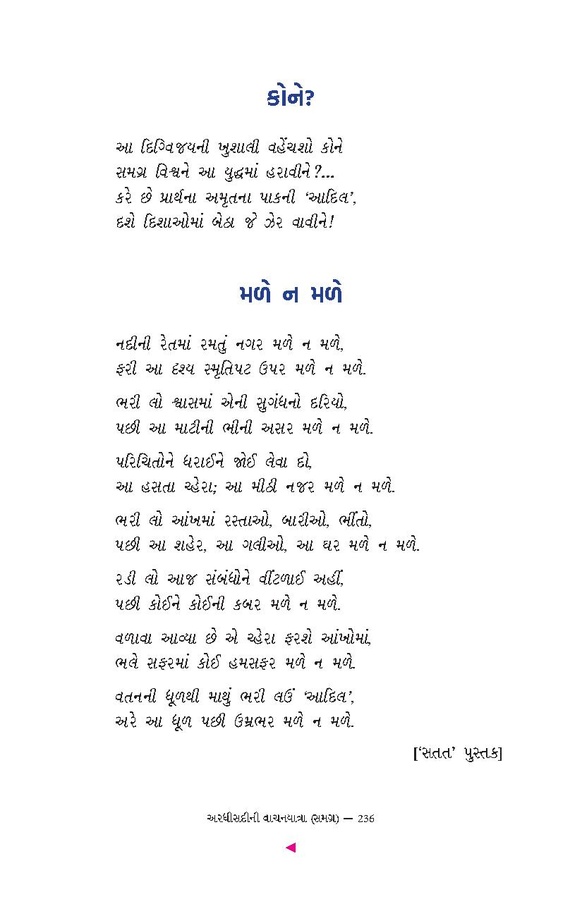 કોને?
આ દિગ્વિજયની ખુશાલી વહેંચશો કોને
સમગ્ર વિશ્વને આ યુદ્ધમાં હરાવીને?...
કરે છે પ્રાર્થના અમૃતના પાકની ‘આદિલ’,
દશે દિશાઓમાં બેઠા જે ઝેર વાવીને!
મળે ન મળે
નદીની રેતમાં રમતું નગર મળે ન મળે,
ફરી આ દશ્ય સ્મૃતિપટ ઉપર મળે ન મળે.
ભરી લો શ્વાસમાં એની સુગંધનો દરિયો,
પછી આ માટીની ભીની અસર મળે ન મળે.
પરિચિતોને ધરાઈને જોઈ લેવા દો,
આ હસતા ચ્હેરા; આ મીઠી નજર મળે ન મળે.
ભરી લો આંખમાં રસ્તાઓ, બારીઓ, ભીંતો,
પછી આ શહેર, આ ગલીઓ, આ ઘર મળે ન મળે.
રડી લો આજ સંબંધોને વીંટળાઈ અહીં,
પછી કોઈને કોઈની કબર મળે ન મળે.
વળાવા આવ્યા છે એ ચ્હેરા ફરશે આંખોમાં,
ભલે સફરમાં કોઈ હમસફર મળે ન મળે.
વતનની ધૂળથી માથું ભરી લઉં ‘આદિલ’,
અરે આ ધૂળ પછી ઉમ્રભર મળે ન મળે.
[‘સતત’ પુસ્તક]
અરધીસદીની વાચનયાત્રા (સમગ્ર) — 236